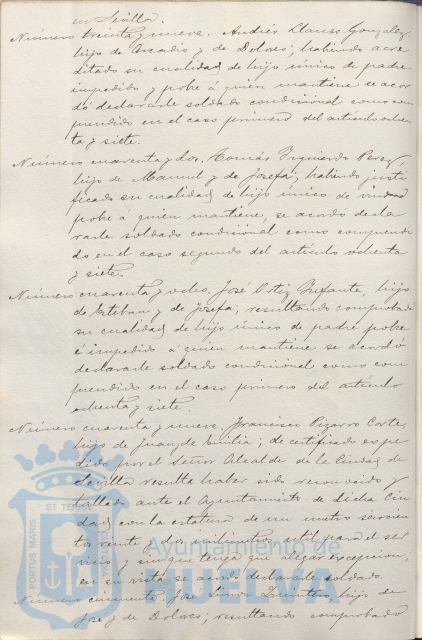 en Sevilla.
Número treinta y nueve. Andrés Llanso González,
hijo de Arcadio y de Dolores; habiendo acre
ditado su cualidad de hijo único de padre
impedido y pobre á quien mantiene se acor
dó declararle soldado condicional como com
prendido en el caso primero del artículo ochen
ta y siete.
Número cuarenta y dos. Tomás Izquierdo Perez,
hijo de Manuel y de Josefa; habiendo justi
ficado su cualidad de hijo único de viuda
pobre á quien mantiene, se acordó decla
rarle soldado condicional como comprendi
do en el caso segundo del artículo ochenta
y siete.
Número cuarenta y ocho. José Ortiz Infante, hijo
de Esteban y de Josefa; resultando comprobada
su cualidad de hijo único de padre pobre
é impedido á quien mantiene se acordó
declararle soldado condicional como com
prendido en el caso primero del artículo
ochenta y siete.
Número cuarenta y nueve. Francisco Pizarro Corte,
hijo de Juan y de Emilia; de certificado expe
dido por el Señor Alcalde de la Ciudad de
Sevilla resulta haber sido reconocido y
tallado ante el Ayuntamiento de dicha Ciu
dad con la estatura de un metro seiscien
tos y dos milímetros, útil para el ser
vicio y sin que tenga que alegar excepcion;
en su vista se acordó declararle soldado.
Número cincuenta. José hijo de
José y de Dolores; resultando comprobado
PORTUS MARIS
ET TERRAE
CUSTODIA
Ayuntamiento de
HUELVA